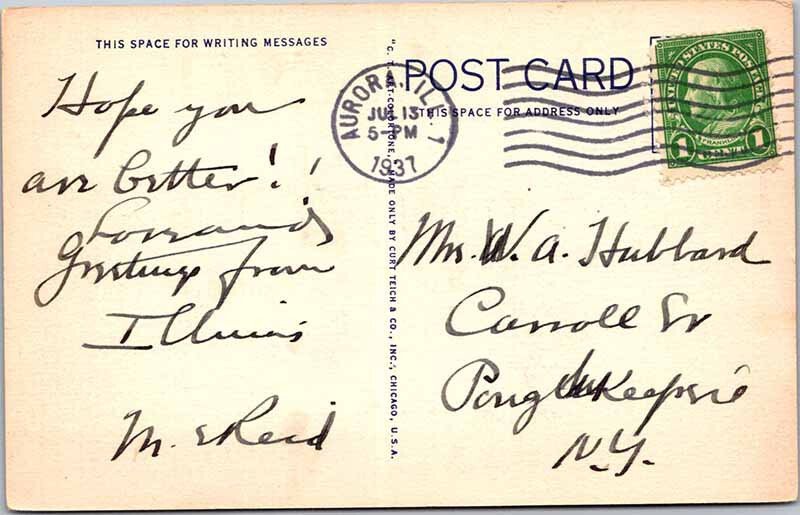 THIS SPACE FOR WRITING MESSAGES
Hope you
are better!!
Love and
Greetings from
Illinois
M. E Reid
"C. T. ART-COLORTONE" MADE ONLY BY CURT TEICH & CO., INC., CHICAGO, U.S.A.
POST CARD
THIS SPACE FOR ADDRESS ONLY
AURORA, ILL. 1
JUL 13
5-PM
1937
UNITED STATES POSTAGE
FRANKLIN
1 CENT 1
Mr. W. A. Hubbard
Carroll St
Poughkeepsie
N.Y.